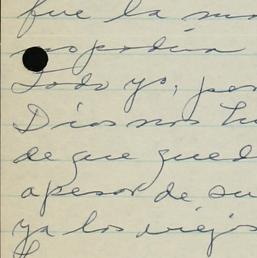 fue la
no podia
Todo yo, per
Dios nos hu
de que qued
apesar de su
ya los viejos